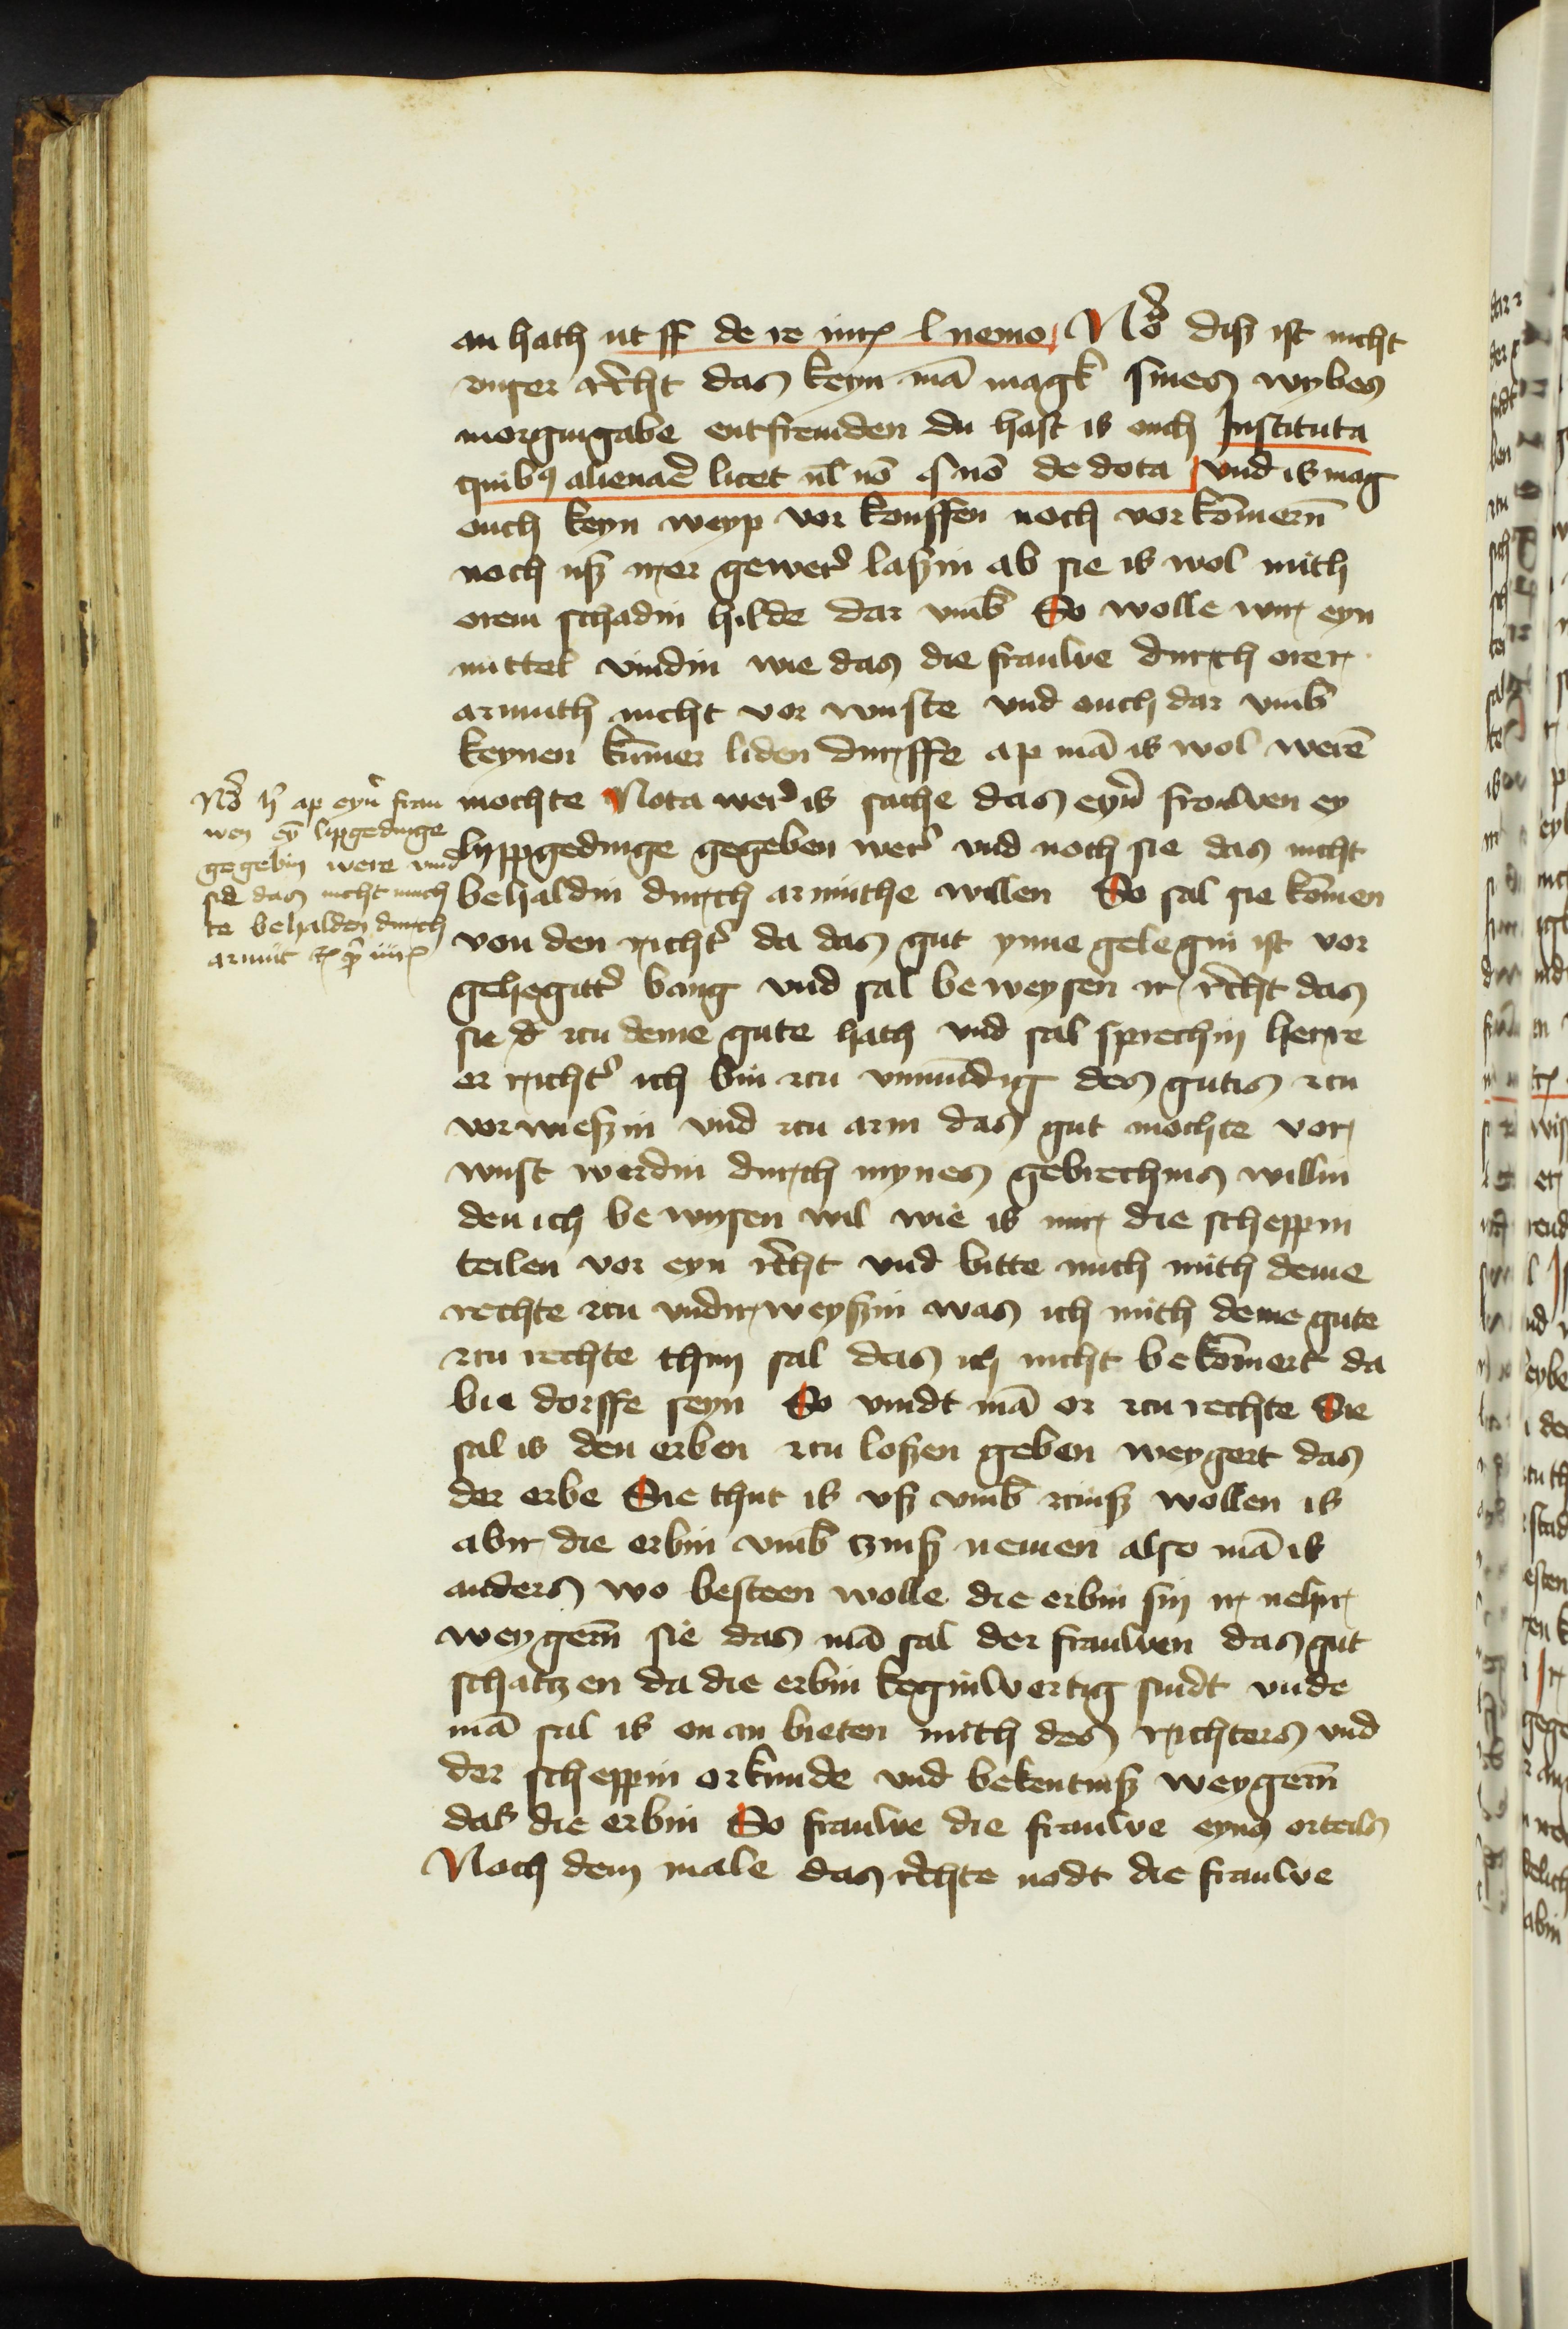 an hath ut ff de re iur l nemo No disz ist nicht
vnser recht das keyn mā magk sines wybes
morgingabe entfremden du hast is ouch Instituta
quibꝰ alienare licet ul nō § nō de dota vnd is mag
ouch keyn weyp vor kouffen noch vor kōmern̄
noch usz irer gewer laszin ab sie is wol mith
orem schadin hilde dar vmb So wolle wir eyn
mittel vindin wie das die frauwe durch orer
armuth nicht vor wuste vnd ouch dar vmb
keynen kūmer liden durffe ap mā is wol werē
mochte Nota wer is sache das eyn frouwen ey
lyppgedinge gegeben wer vnd noch sie das nicht
behaldin durch armuthe willen So sal sie kōmen
von den richter da das gut ynne gelegin ist vor
gehegitter bang vnd sal beweysen ir recht das
sie d zcu deme gute hath vnd sal sprechin herre
er richter ich bin zcu vnmūdig des gutis zcu
vorwieszin vnd zcu arm das gut mochte vor
wust werdin durch mynes gebrechins willin
den ich bewysen wil wie is mir die scheppin
teilen vor eyn recht vnd bitte mich mith deme
rechte zcu vndirweyszin was ich mith deme gute
zcu rechte thun sal das ich nicht bekōmert da
bie dorffe seyn So vindt mā or zcu rechte Sie
sal is den erben zcu loszen geben weygert das
der erbe Sie thut is vsz vmb zcinsz wollen is
abir die erbin vmb tzinsz nemen also mā is
anders wo besteen wolle die erbin sin ir neher
weygern̄ sie das mā sal der frauwen das gut
schatzen da die erbin keginwertig sindt vnde
mā sal is on an bieten mith des richters vnd
der scheppin orkunde vnd bekentnisz weygern̄
das die erbin So frauwe die frauwe eyns orteils
Noch dem male das rechte nodt die frauwe
No h ap eyner frau
wen eȳ lipgedinge
gegebin were vnd
sie das nicht much
te behalden durch
armut